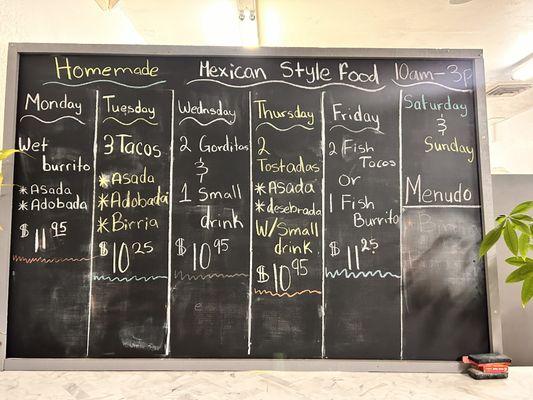 Homemade Mexican Style Food 10am-3p
Monday
Wet
burrito
* Asada
* Adobada
$ 11 95
Tuesday
3 Tacos
* Asada
* Adobada
* Birria
$ 10 25
Wednesday
2 Gorditas
&
1 Small
drink
$ 10 95
Thursday
2
Tostadas
* Asada
* desebrada
W/ Small
drink
$ 10 95
Friday
2 Fish
Tacos
Or
1 Fish
Burrito
$ 11 25
Saturday
&
Sunday
Menudo